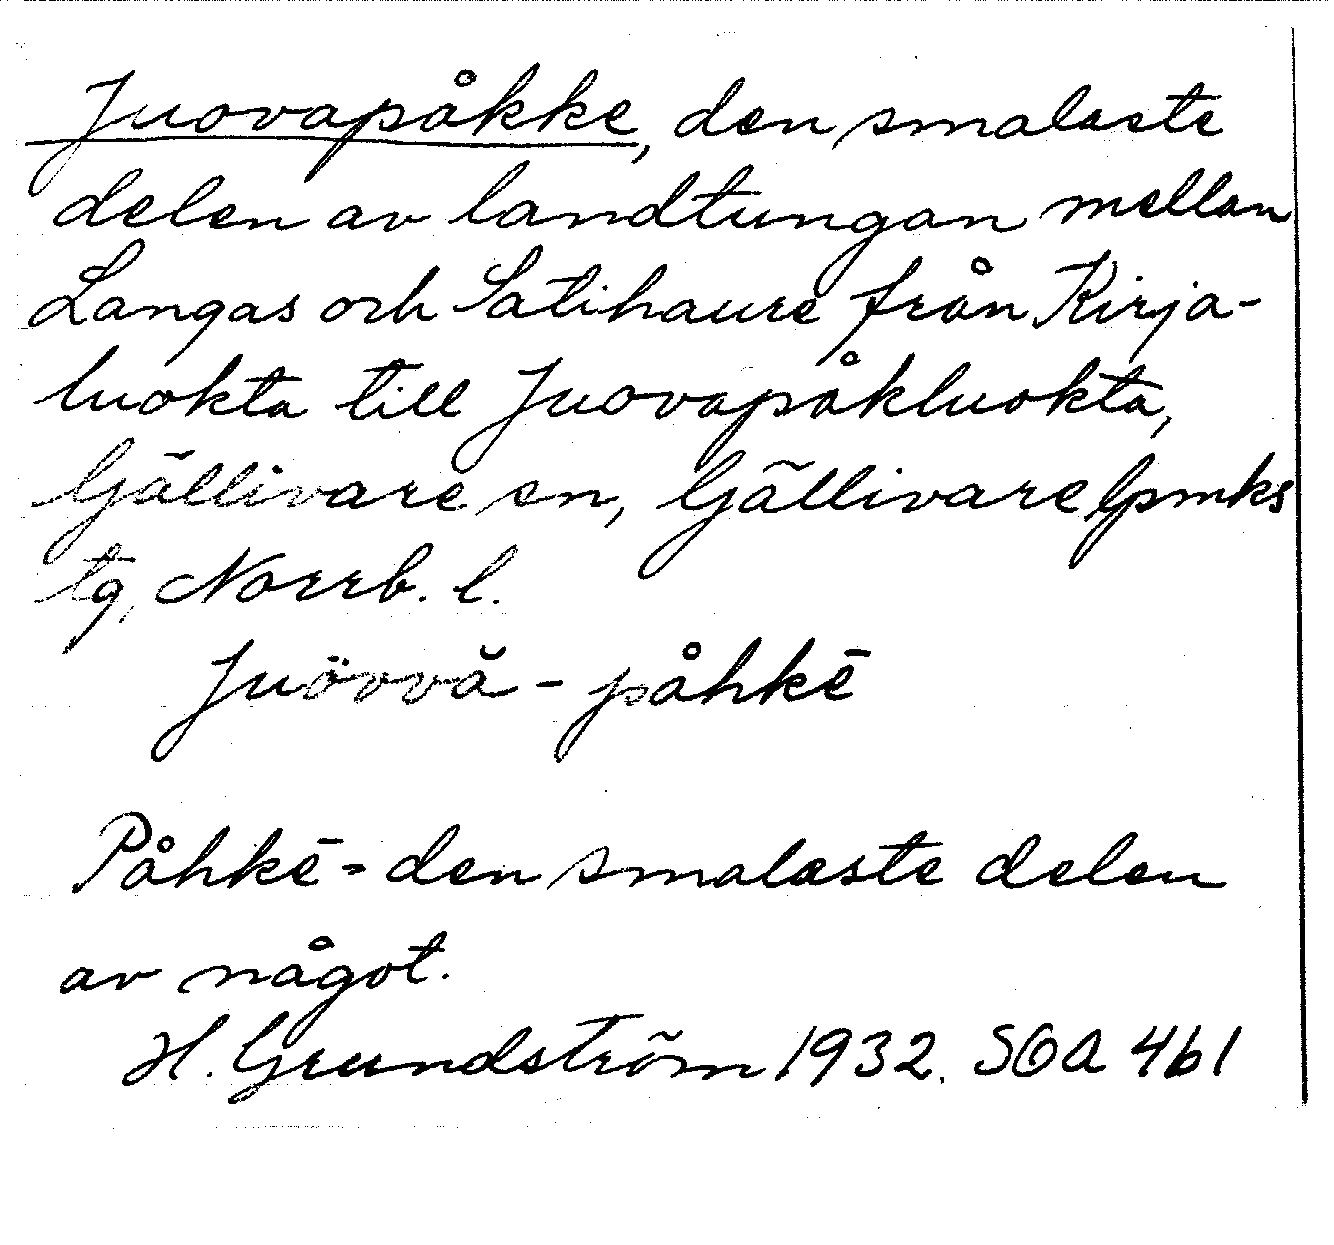 Juovapåkke, den smalaste
delen av landtungan mellan
Langas och Satihaure från Kirja-
luokta till Juovapåkluokta,
Gällivare sn, Gällivare lpmks
tg, Norrb. l.
Juövvă - påhkē
Påhkē - den smalaste delen
av något.
H. Grundström 1932. SOA 461